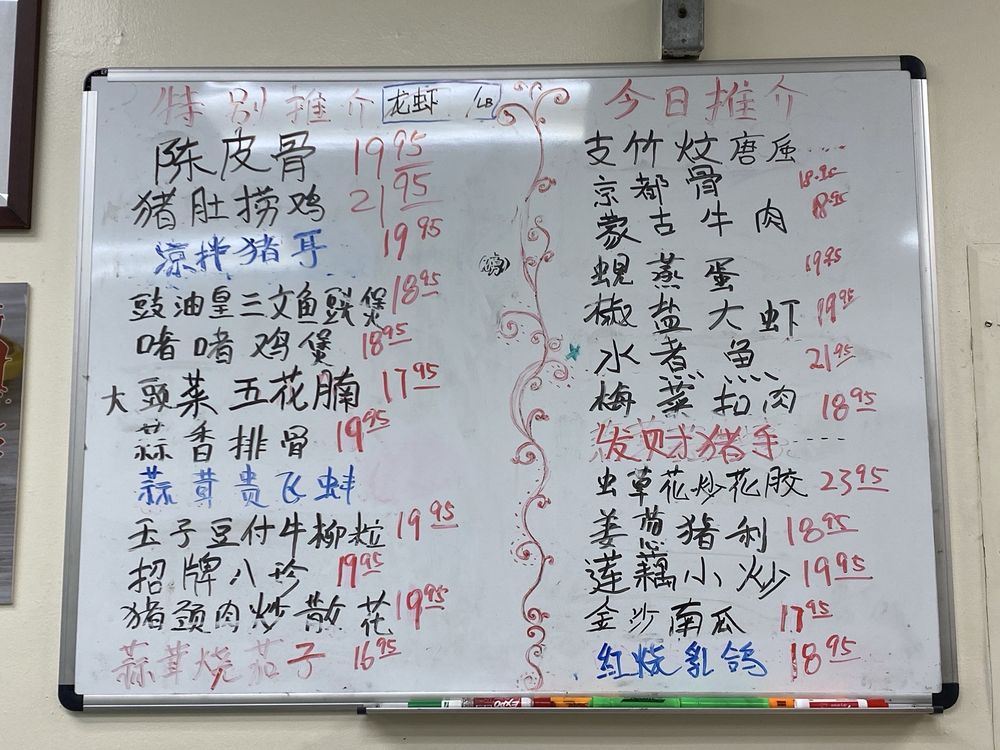 特别推介 龙虾 /LB
陈皮骨 19.95
猪肚捞鸡 21.95
凉拌猪耳 19.95
豉油皇三文鱼头煲 18.95
啫啫鸡煲 18.95
大頭菜五花腩 17.95
蒜香排骨 19.95
蒜茸贵飞蚌
玉子豆付牛柳粒 19.95
招牌八珍 19.95
猪颈肉炒散花 19.95
蒜茸烧茄子 16.95
今日推介
支竹炆
京都骨 18.95
蒙古牛肉 18.95
蚬蒸蛋 19.95
椒盐大虾 19.95
水煮鱼 21.95
梅菜扣肉 18.95
发财猪手
虫草花炒花胶 23.95
姜葱猪利 18.95
莲藕小炒 19.95
金沙南瓜 17.95
红烧乳鸽 18.95
EXPO